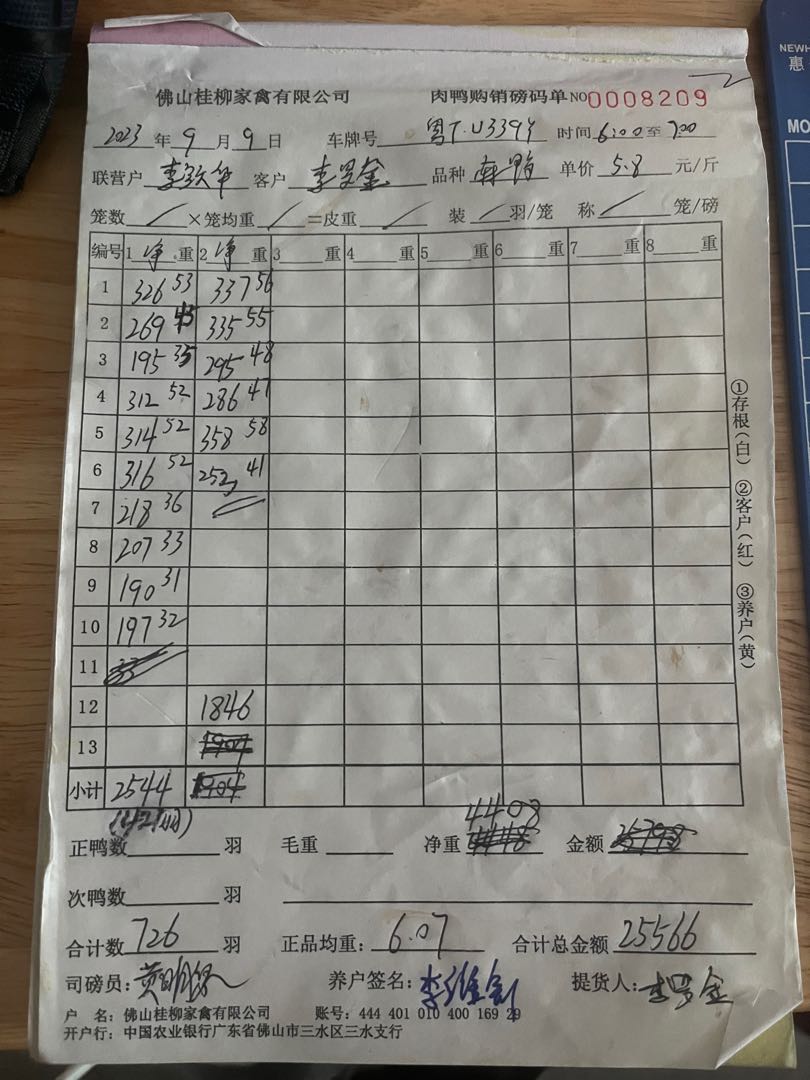 NEWH
惠
MO
佛山桂柳家禽有限公司 肉鸭购销磅码单 NO 0008209
2023 年 9 月 9 日 车牌号 粤T.U339Y 时间 6:00 至 7:00
联营户 客户 李罗金 品种 单价 5.8 元/斤
笼数 / ×笼均重 / =皮重 / 装 / 羽/笼 称 / 笼/磅
编号 1 净 重 2 净 重 3 重 4 重 5 重 6 重 7 重 8 重
1 326 53 337 56
2 269 45 335 55
3 195 35 295 48
4 312 52 286 47
5 314 52 358 58
6 316 52 252 41
7 218 36
8 207 33
9 190 31
10 197 32
11
12 1846
13 1904
小计 2544 1904
4408
正鸭数 羽 毛重 净重 金额
次鸭数 羽
合计数 726 羽 正品均重: 6.07 合计总金额 25566
司磅员: 养户签名: 提货人: 李罗金
户 名: 佛山桂柳家禽有限公司 账号: 444 401 010 400 169 29
开户行: 中国农业银行广东省佛山市三水区三水支行
①存根(白) ②客户(红) ③养户(黄)